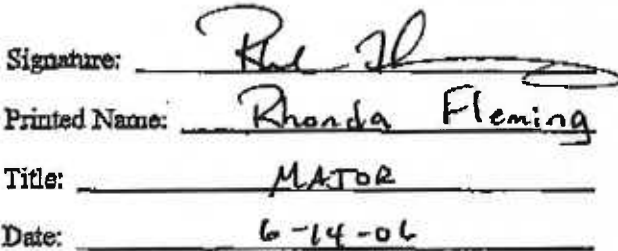 Signature:
Printed Name: Rhonda Fleming
Title: MATOR
Date: 6-14-06